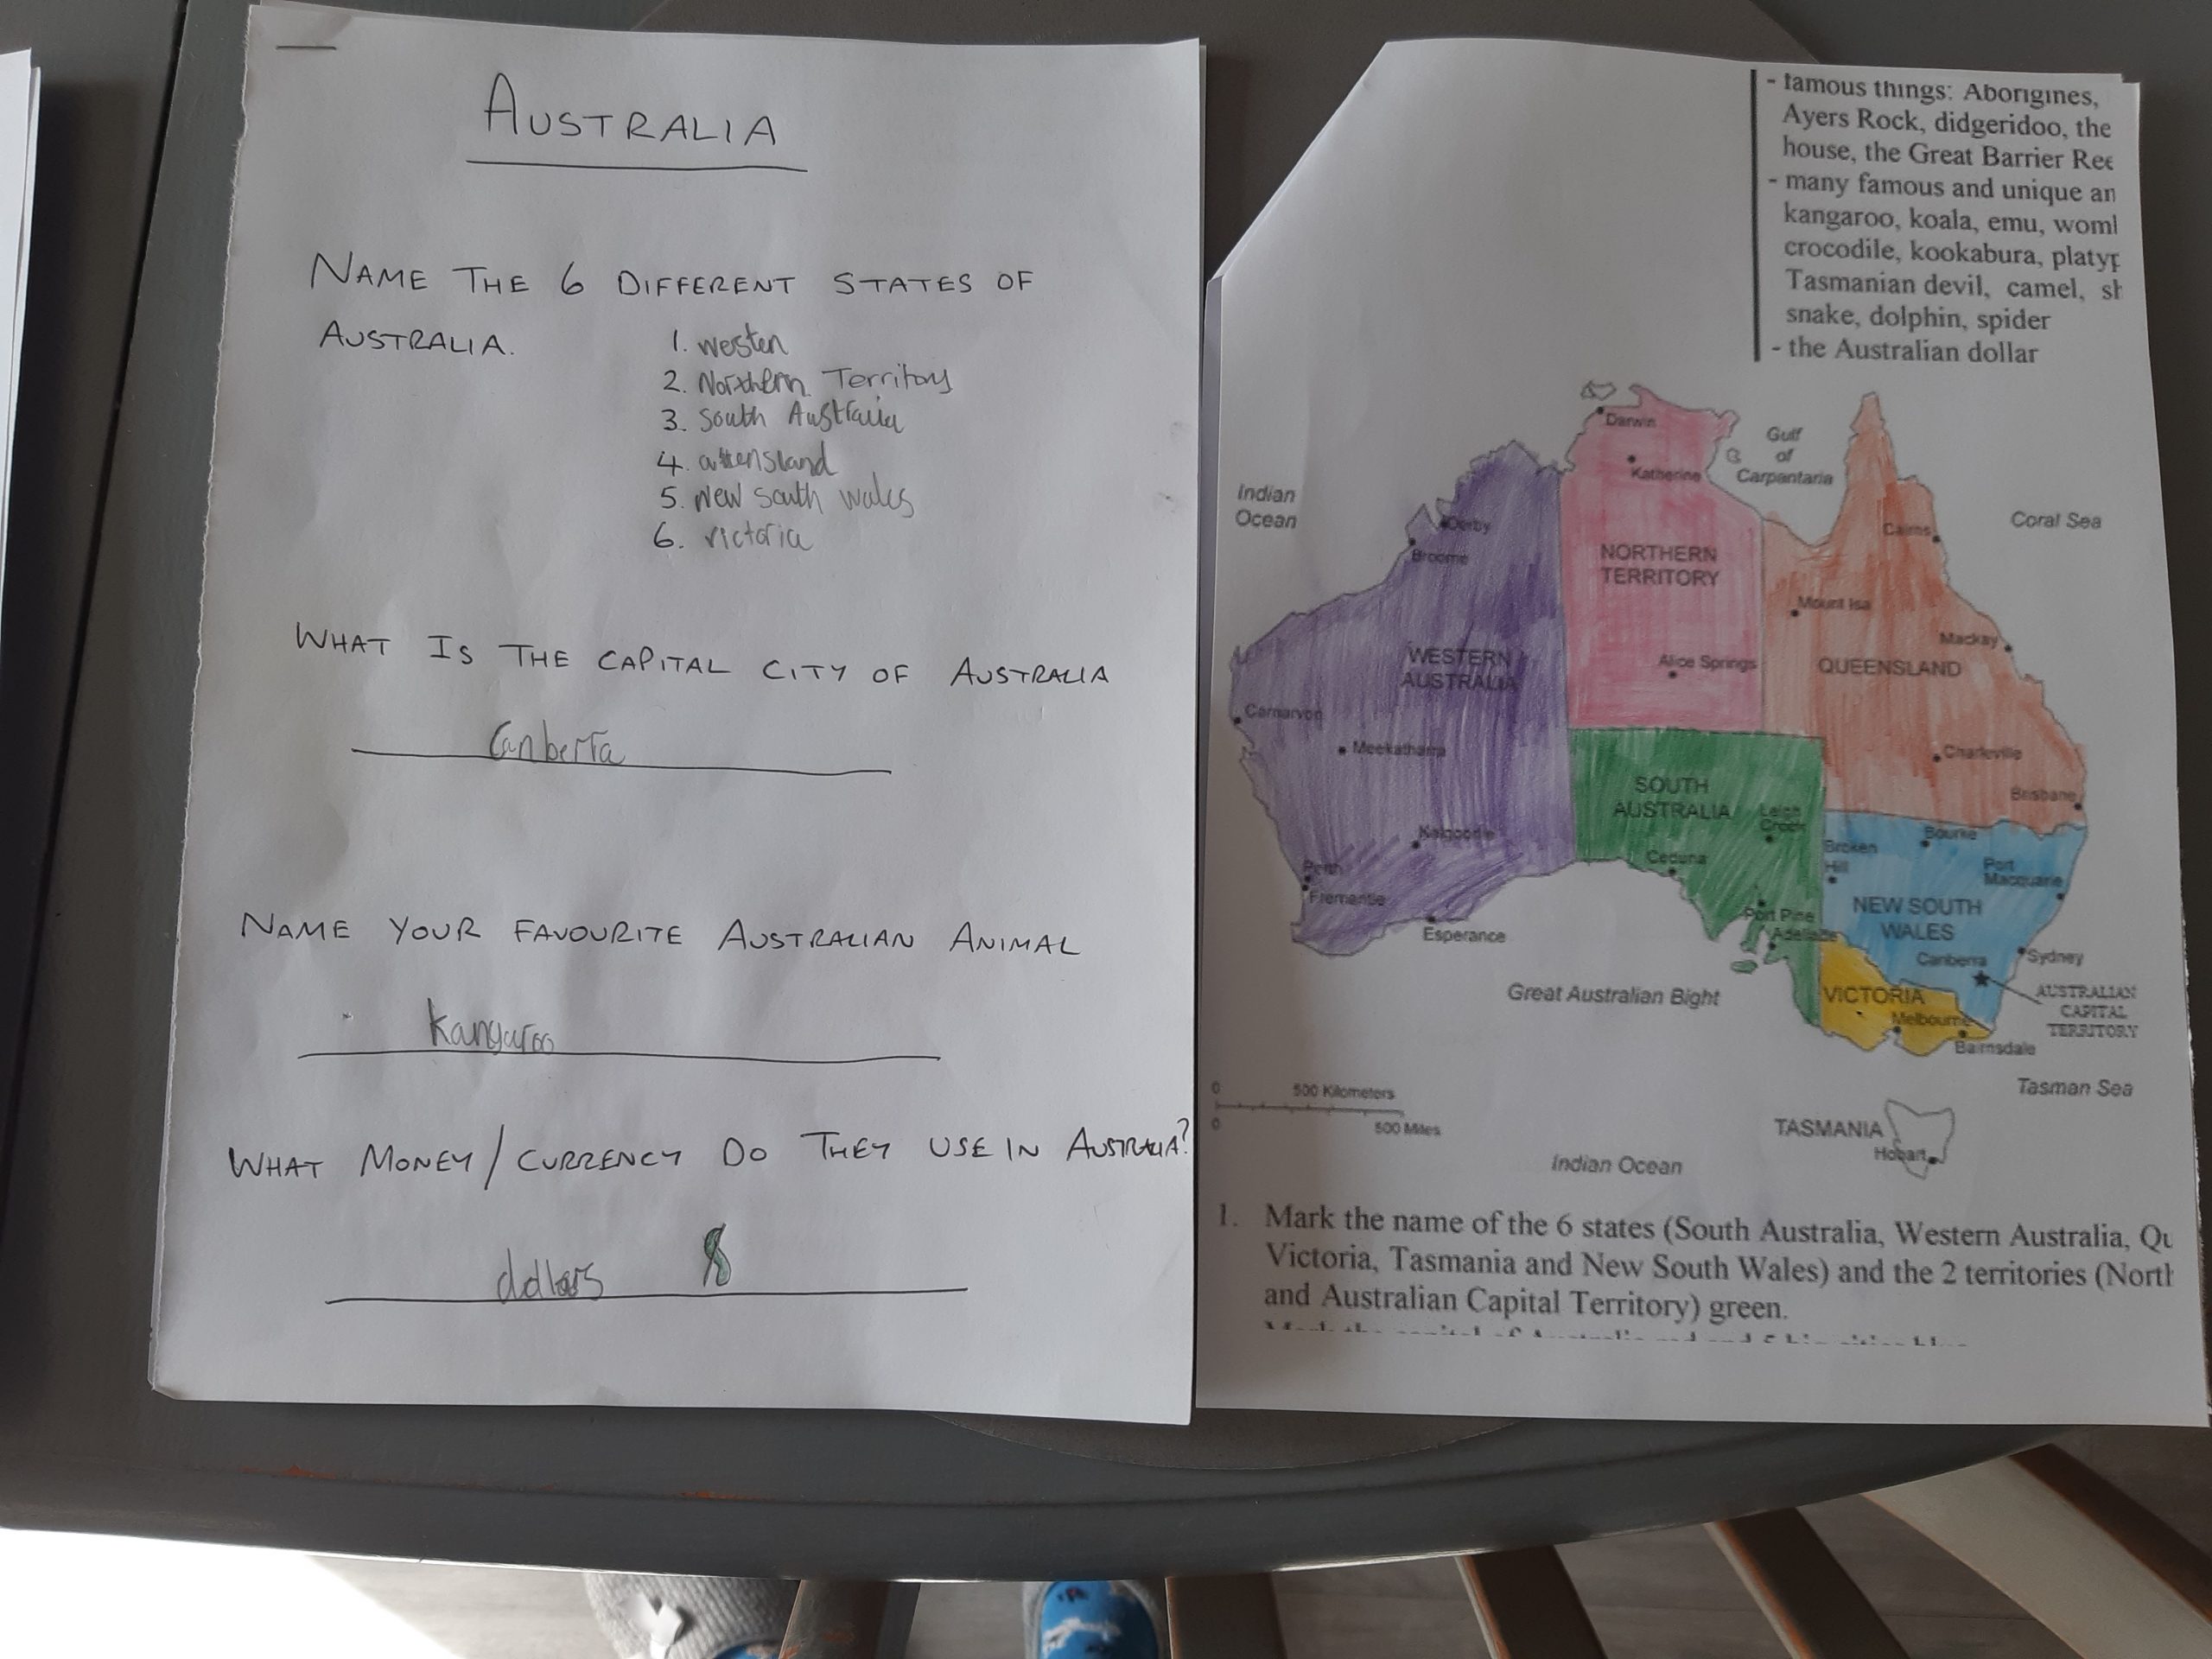 AUSTRALIA
NAME THE 6 DIFFERENT STATES OF
AUSTRALIA.
1. westen
2. Northern Territory
3. South Australia
4.
5. New south wales
6. victoria
WHAT IS THE CAPITAL CITY OF AUSTRALIA
Canberra
NAME YOUR FAVOURITE AUSTRALIAN ANIMAL
kangaroo
WHAT MONEY/CURRENCY DO THEY USE IN AUSTRALIA?
dollars $
- famous things: Aborigines,
Ayers Rock, didgeridoo, the
house, the Great Barrier Ree
- many famous and unique an
kangaroo, koala, emu, woml
crocodile, kookabura, platyp
Tasmanian devil, camel, sh
snake, dolphin, spider
- the Australian dollar
Darwin
Gulf
of
Carpentaria
Katherine
Indian
Ocean
Coral Sea
Derby
Cairns
Broome
NORTHERN
TERRITORY
Mount Isa
Mackay
WESTERN
AUSTRALIA
Alice Springs
QUEENSLAND
Carnarvon
Meekatharra
Charleville
SOUTH
AUSTRALIA
Brisbane
Leigh
Creek
Kalgoorlie
Bourke
Broken
Hill
Ceduna
Port
Macquarie
Perth
Fremantle
NEW SOUTH
WALES
Port Pirie
Adelaide
Esperance
Canberra
Sydney
Great Australian Bight
VICTORIA
AUSTRALIAN
CAPITAL
TERRITORY
Melbourne
Bairnsdale
0 500 Kilometers
0 500 Miles
Tasman Sea
TASMANIA
Hobart
Indian Ocean
1. Mark the name of the 6 states (South Australia, Western Australia, Qu
Victoria, Tasmania and New South Wales) and the 2 territories (North
and Australian Capital Territory) green.